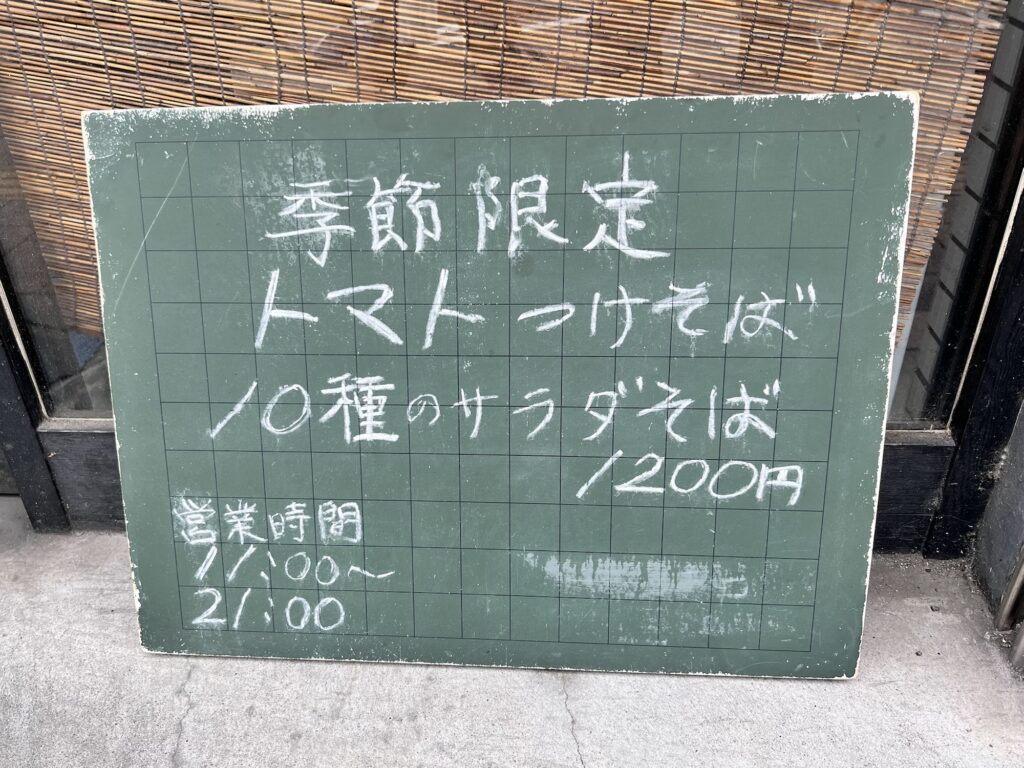 季節限定
トマトつけそば
10種のサラダそば
1200円
営業時間
11:00～
21:00